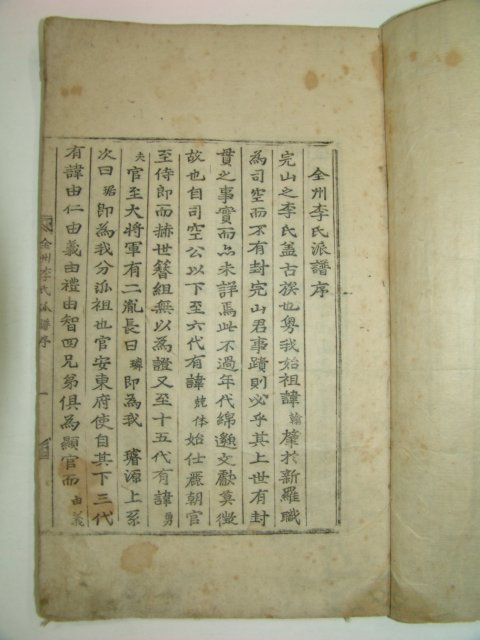 全州李氏派譜序
完山之李氏盖古族也粤我始祖諱翰肇於新羅職
為司空而不有封完山君事蹟則必乎其上世有封
貫之事實而亦未詳焉此不過年代綿邈文獻莫徵
故也自司空公以下至六代有諱兢休始仕麗朝官
至侍郎而赫世簪組無以為證又至十五代有諱勇
夫官至大將軍有二胤長曰璘即為我 璿源上系
次曰珺即為我分派祖也官安東府使自其下三代
有諱由仁由義由禮由智四兄弟俱為顯官而由義
全州李氏派譜序
一